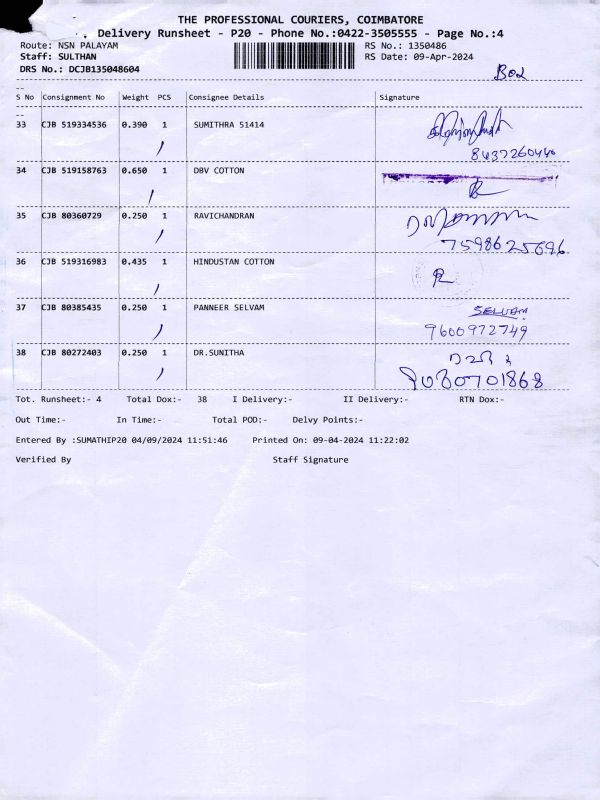 THE PROFESSIONAL COURIERS, COIMBATORE
Delivery Runsheet - P20 - Phone No.:0422-3505555 - Page No.:4
Route: NSN PALAYAM RS No.: 1350486
Staff: SULTHAN RS Date: 09-Apr-2024
DRS No.: DCJB135048604
--
S No Consignment No Weight PCS Consignee Details Signature
--
33 CJB 519334536 0.390 1 SUMITHRA 51414
8437260440
34 CJB 519158763 0.650 1 DBV COTTON
35 CJB 80360729 0.250 1 RAVICHANDRAN
7598625696
36 CJB 519316983 0.435 1 HINDUSTAN COTTON
37 CJB 80385435 0.250 1 PANNEER SELVAM SELVAM
9600972749
38 CJB 80272403 0.250 1 DR.SUNITHA
9080701868
Tot. Runsheet:- 4 Total Dox:- 38 I Delivery:- II Delivery:- RTN Dox:-
Out Time:- In Time:- Total POD:- Delvy Points:-
Entered By :SUMATHIP20 04/09/2024 11:51:46 Printed On: 09-04-2024 11:22:02
Verified By Staff Signature